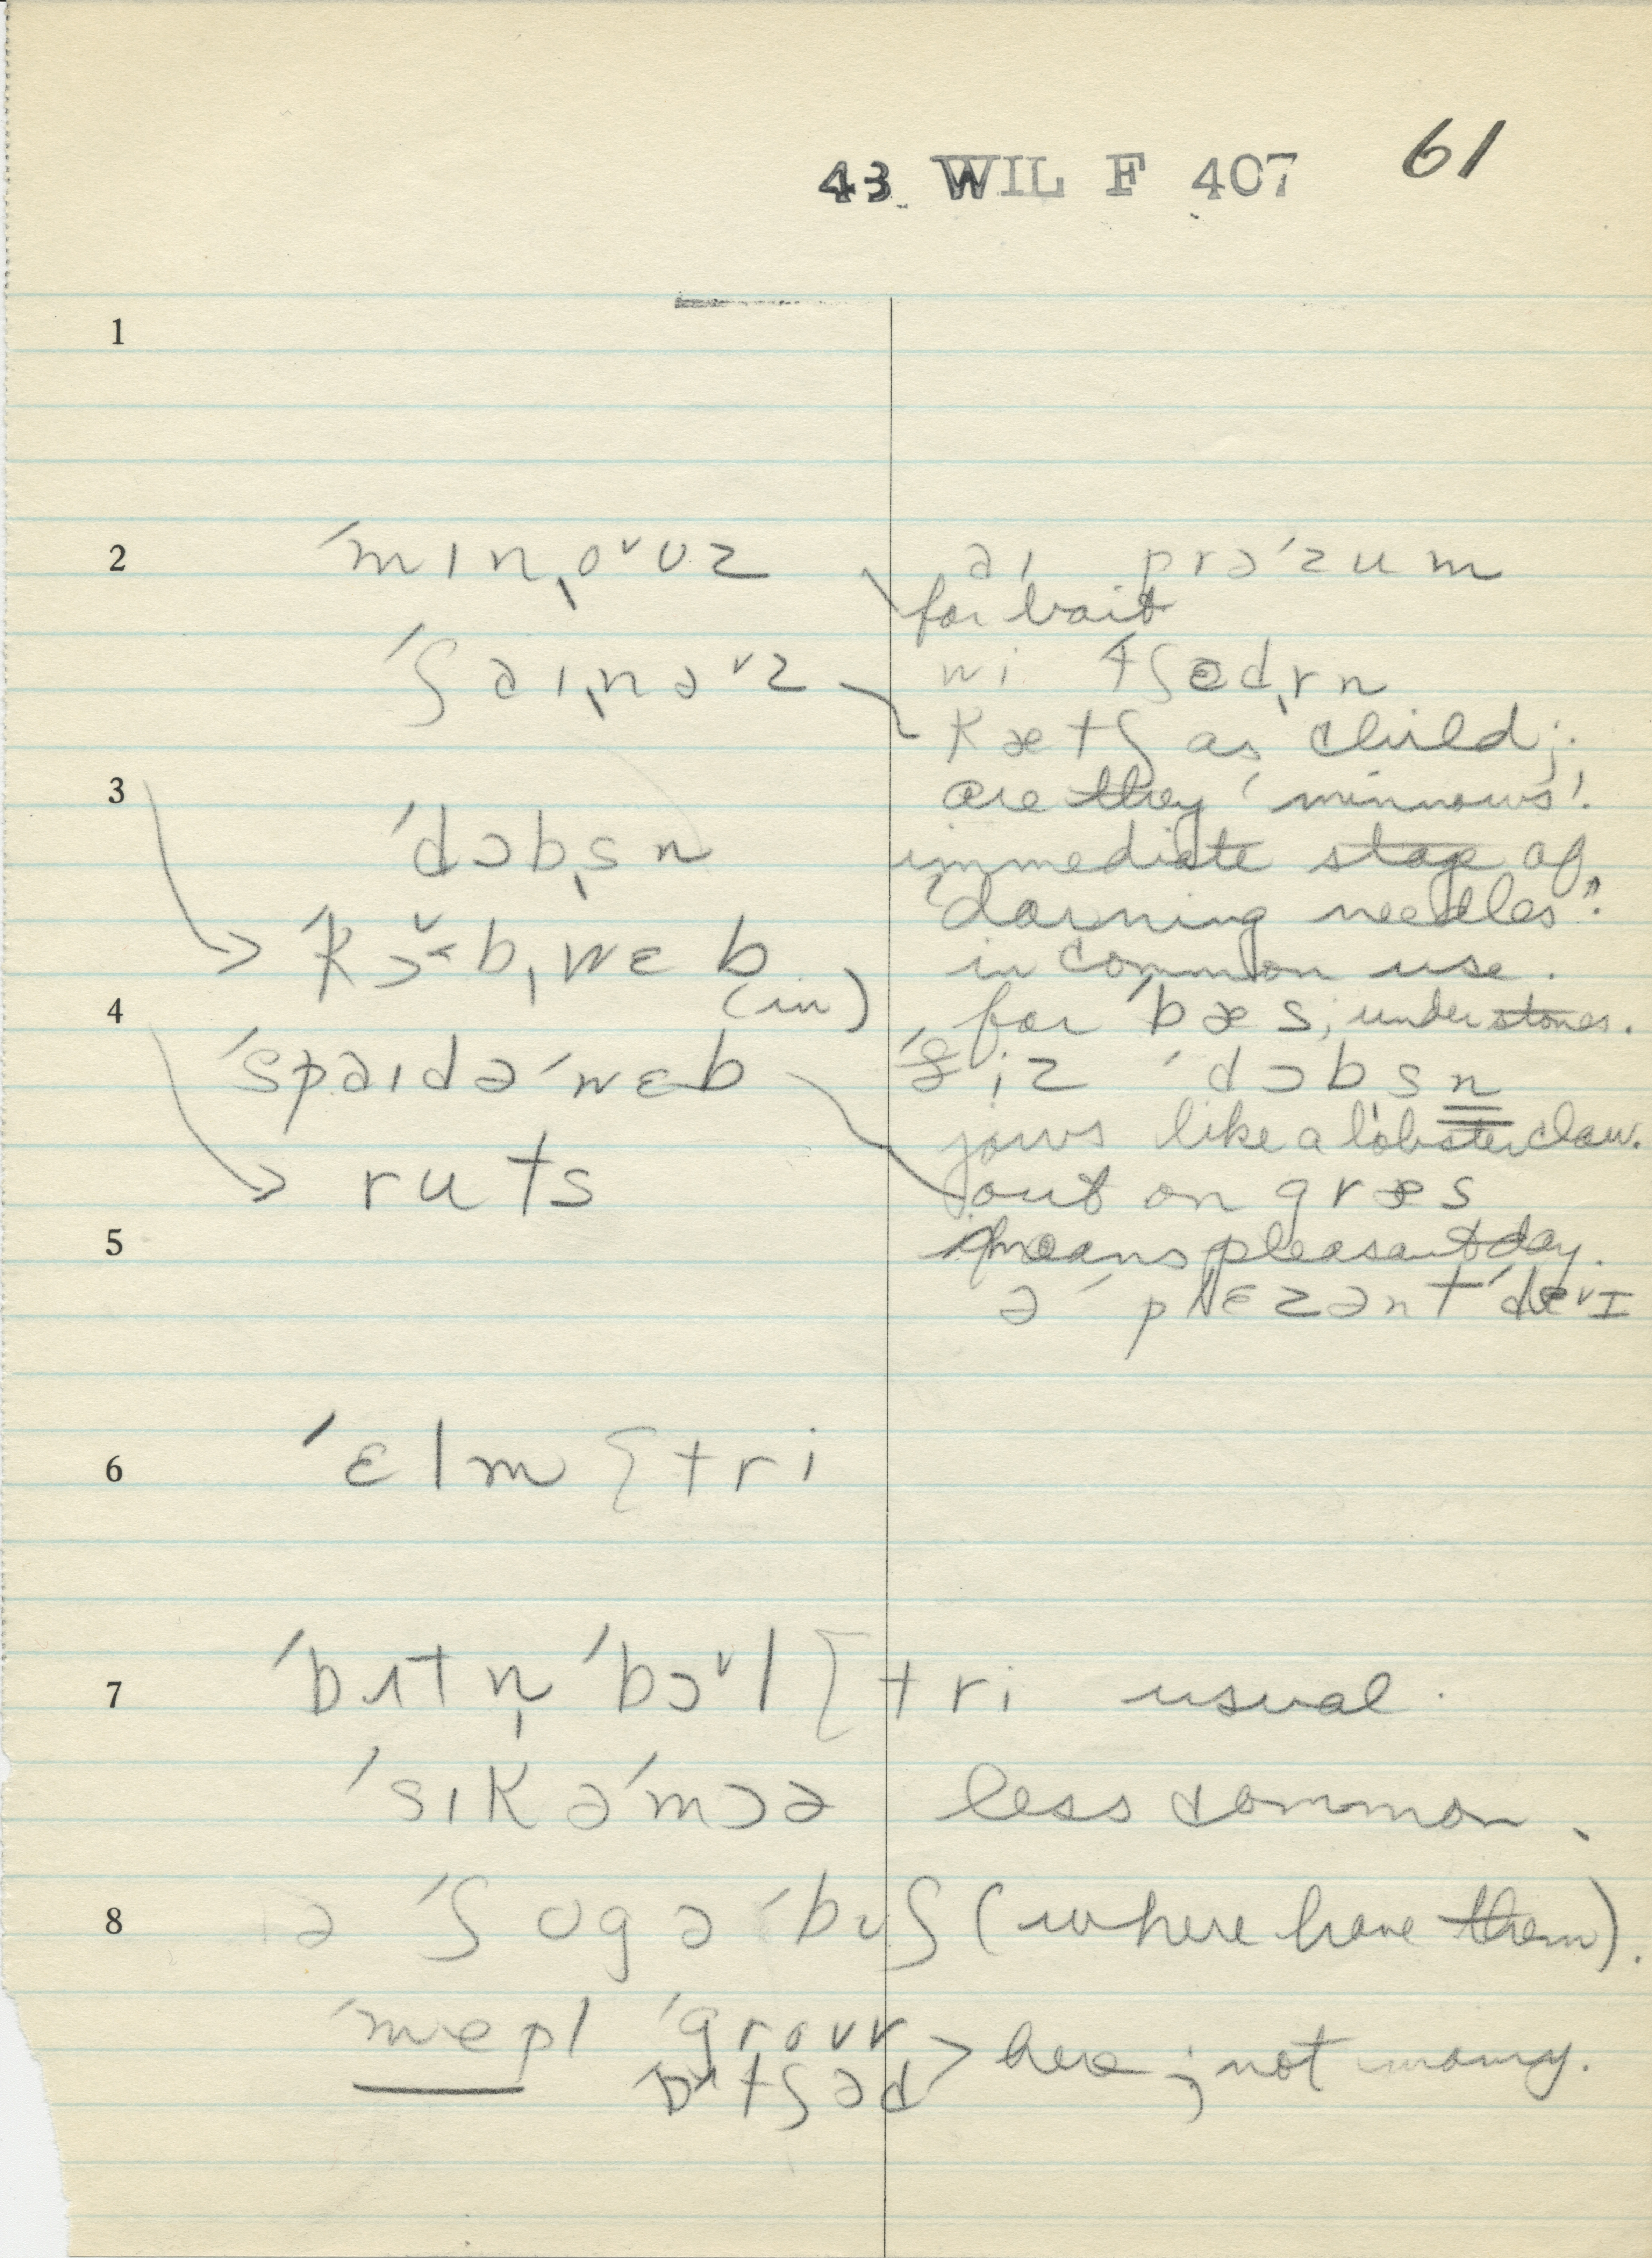 43 WIL F 407 61
1
2 ˈmɪnˌoᵛʊz əɪ prəˈzum
for bait
ˈʃaɪˌnəᵛz wi tʃədˌrn
kætʃ as child;
3 are they 'minnows'.
ˈdɔbˌsn immediate stage of
"darning needles".
ˈkɔᵛbˌwɛb in common use.
4 (in) for ˈbæs, under stones.
ˈspaɪdəˈwɛb ˌiz ˈdɔbsn
jaws like a lobster claw.
ruts out on græs
5 means pleasant day.
ə ˈplɛzənt ˈdeᵛɪ
6 ˈɛlm {tri
7 ˈbʌtn̩ ˈbɔᵛl {tri usual.
ˈsɪkəˈmɔə less common.
8 ə ˈʃʊgəˈbʊʃ (where have them).
ˈmepl ˈgroᵛvr
ɒtʃəd > here; not many.